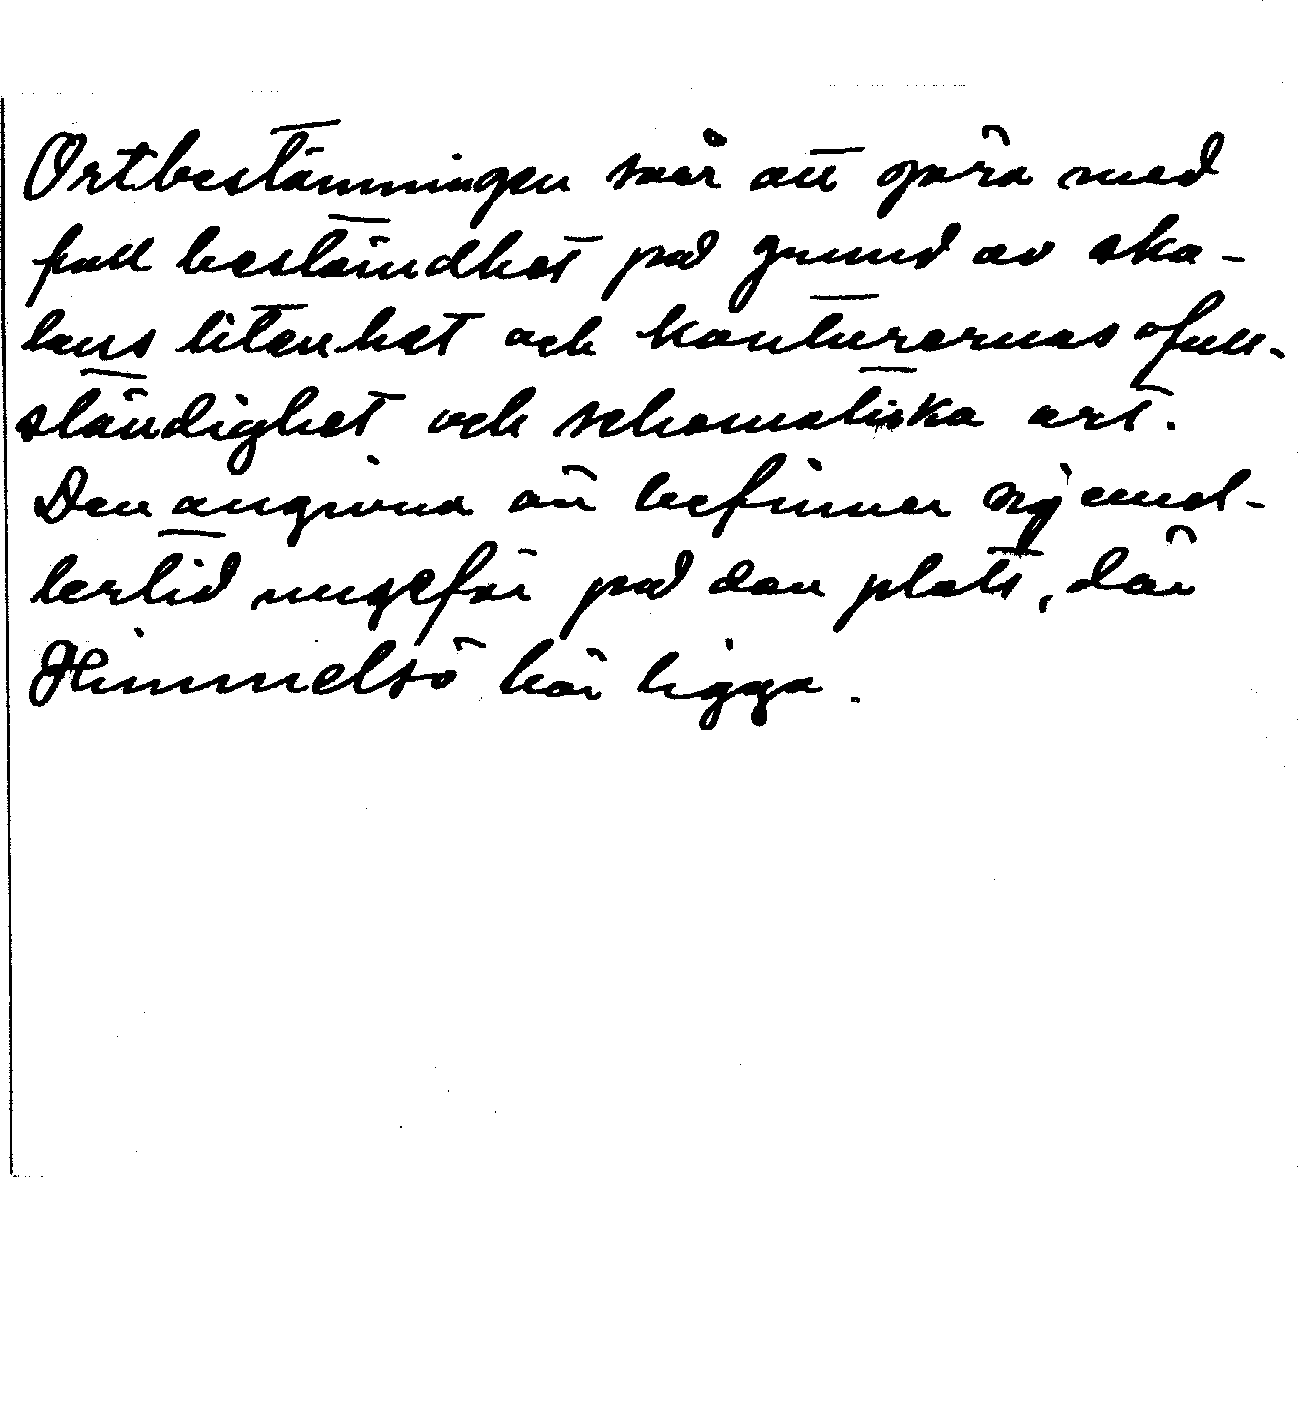 Ortbestämningen svår att göra med
full beständhet på grund av ska-
lans litenhet och konturernas ofull-
ständighet och schematiska art.
Den angivna ön befinner sig emel-
lertid ungefär på den plats, där
Himmelsö bör ligga.